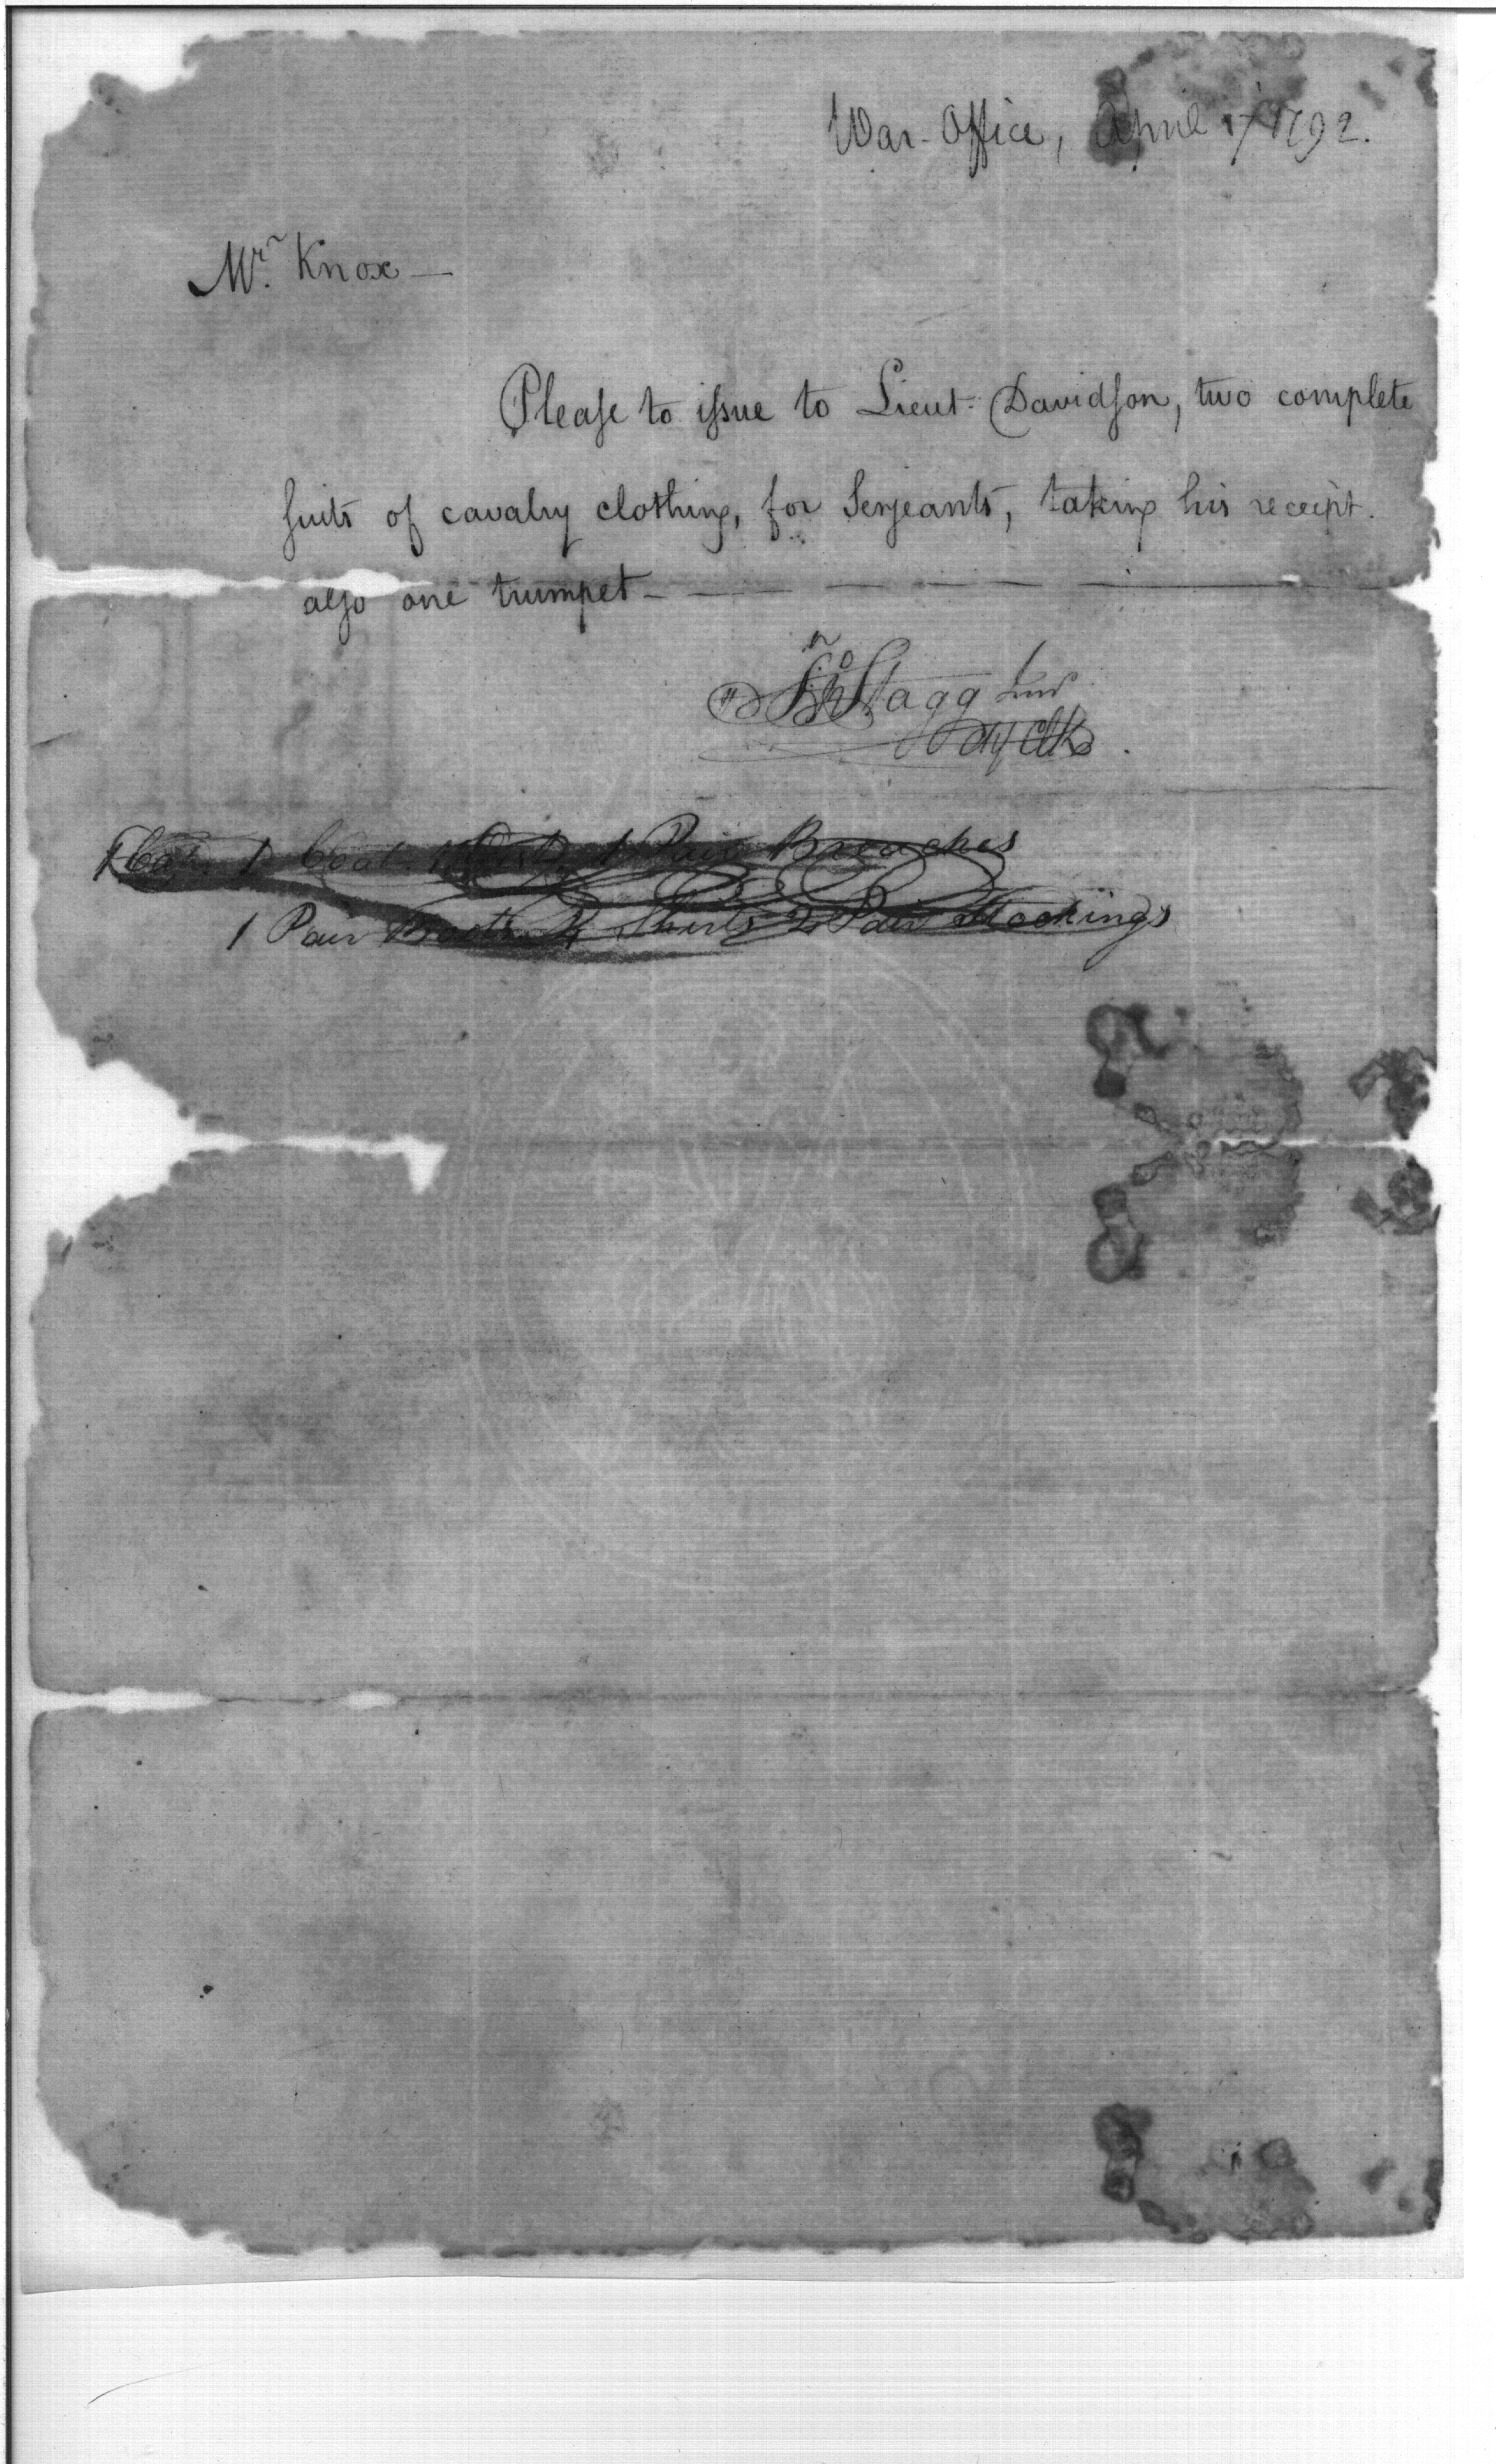 War-Office, April 17 1792.
Mr. Knox —
Please to issue to Lieut. Davidson, two complete
suits of cavalry clothing, for Serjeants, taking his receipt.
also one trumpet - — — — — —
Jno Stagg Junr
Clk.
1 Coat 1 Pair Breeches
1 Pair Boots 4 Shirts 2 Pair Stockings